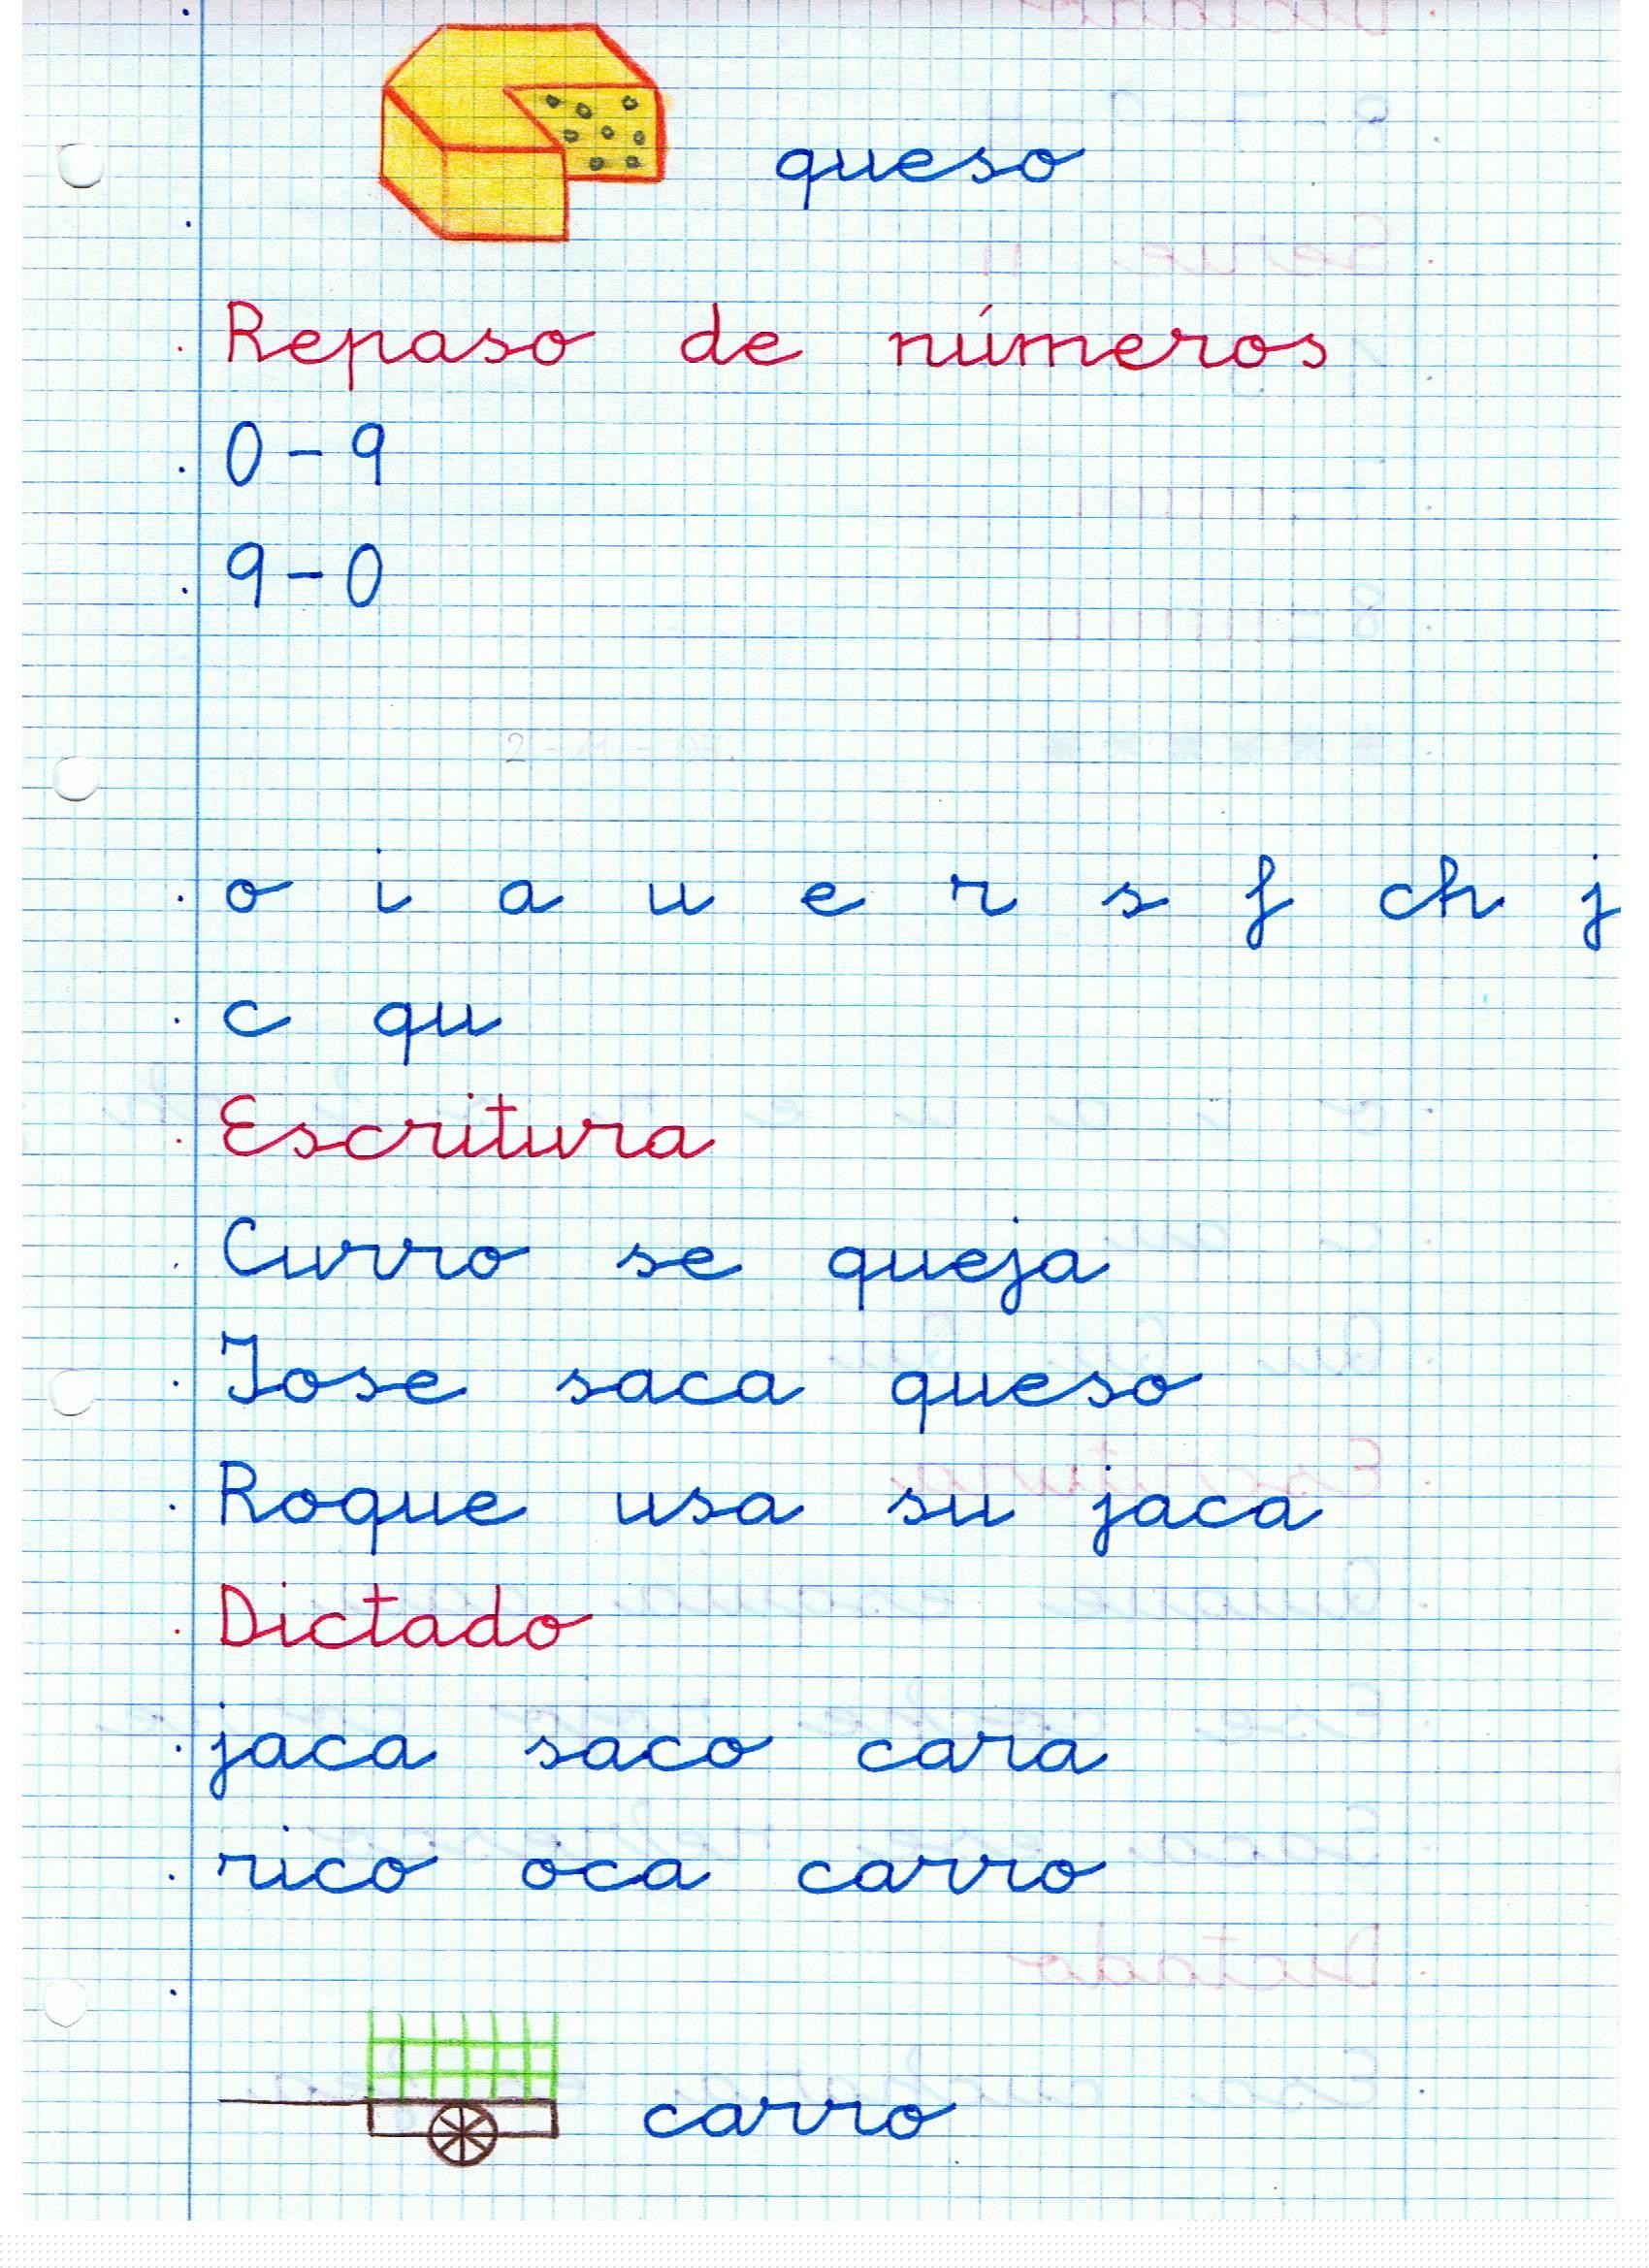 queso
Repaso de números
0-9
9-0
o i a u e r s f ch j
c qu
Escritura
Curro se queja
Jose saca queso
Roque usa su jaca
Dictado
jaca saco cara
rico oca carro
carro